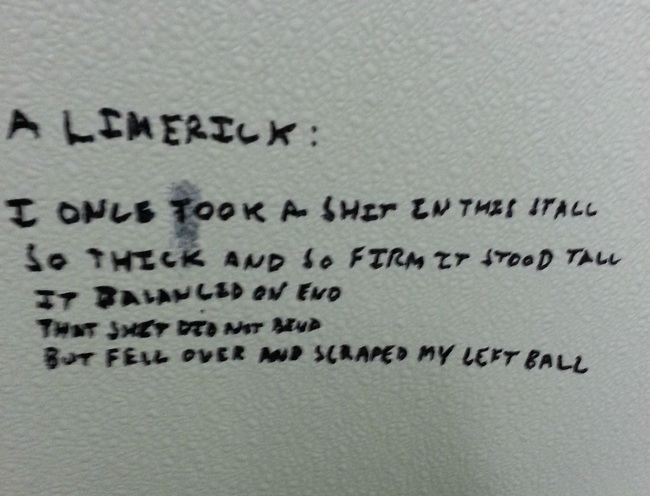 A LIMERICK:
I ONCE TOOK A SHIT IN THIS STALL
SO THICK AND SO FIRM IT STOOD TALL
IT BALANCED ON END
THAT SHIT DID NOT BEND
BUT FELL OVER AND SCRAPED MY LEFT BALL